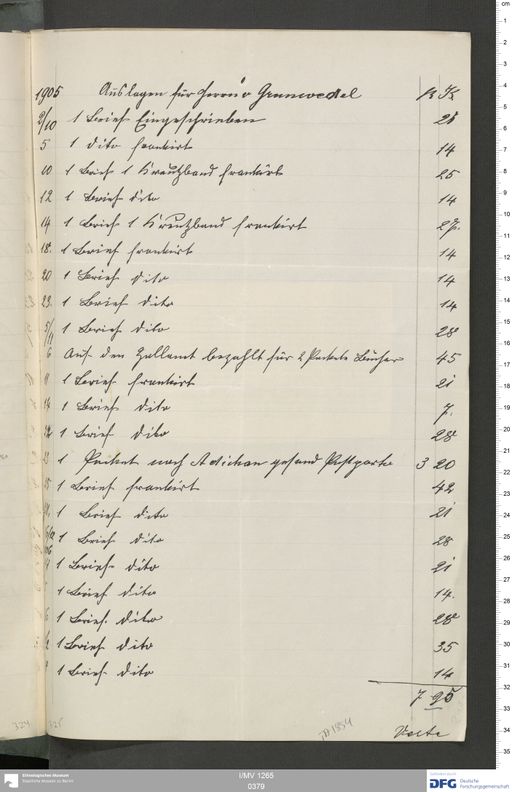 1905 Auslagen für Herrn v Grunwedel R K
2/10 1 Brief Eingeschrieben 28
5 1 dito frankirt 14
10 1 Brief 1 Kreutzband frankirt 25
12 1 Brief dito 14
14 1 Brief 1 Kreutzband frankirt 27.
18. 1 Brief frankirt 14
20 1 Brief dito 14
23. 1 Brief dito 14
5/11 1 Brief dito 28
6 Auf den Zollamt bezahlt für 2 Packete Bücher 45
11 1 Brief frankirt 21
14 1 Brief dito 7.
22 1 Brief dito 28
1 Packet nach gesand Postporto 3 20
1 Brief frankirt 42
1 Brief dito 21
1 Brief dito 28
1 Brief dito 21
1 Brief dito 14.
6 1 Brief dito 28
2 1 Brief dito 35
1 Brief dito 14
7 95
324 325
1854
Volte
Ethnologisches Museum
Staatliche Museen zu Berlin
I/MV 1265
0379
gefördert durch
DFG Deutsche
Forschungsgemeinschaft
cm
1
2
3
4
5
6
7
8
9
10
11
12
13
14
15
16
17
18
19
20
21
22
23
24
25
26
27
28
29
30
31
32
33
34
35